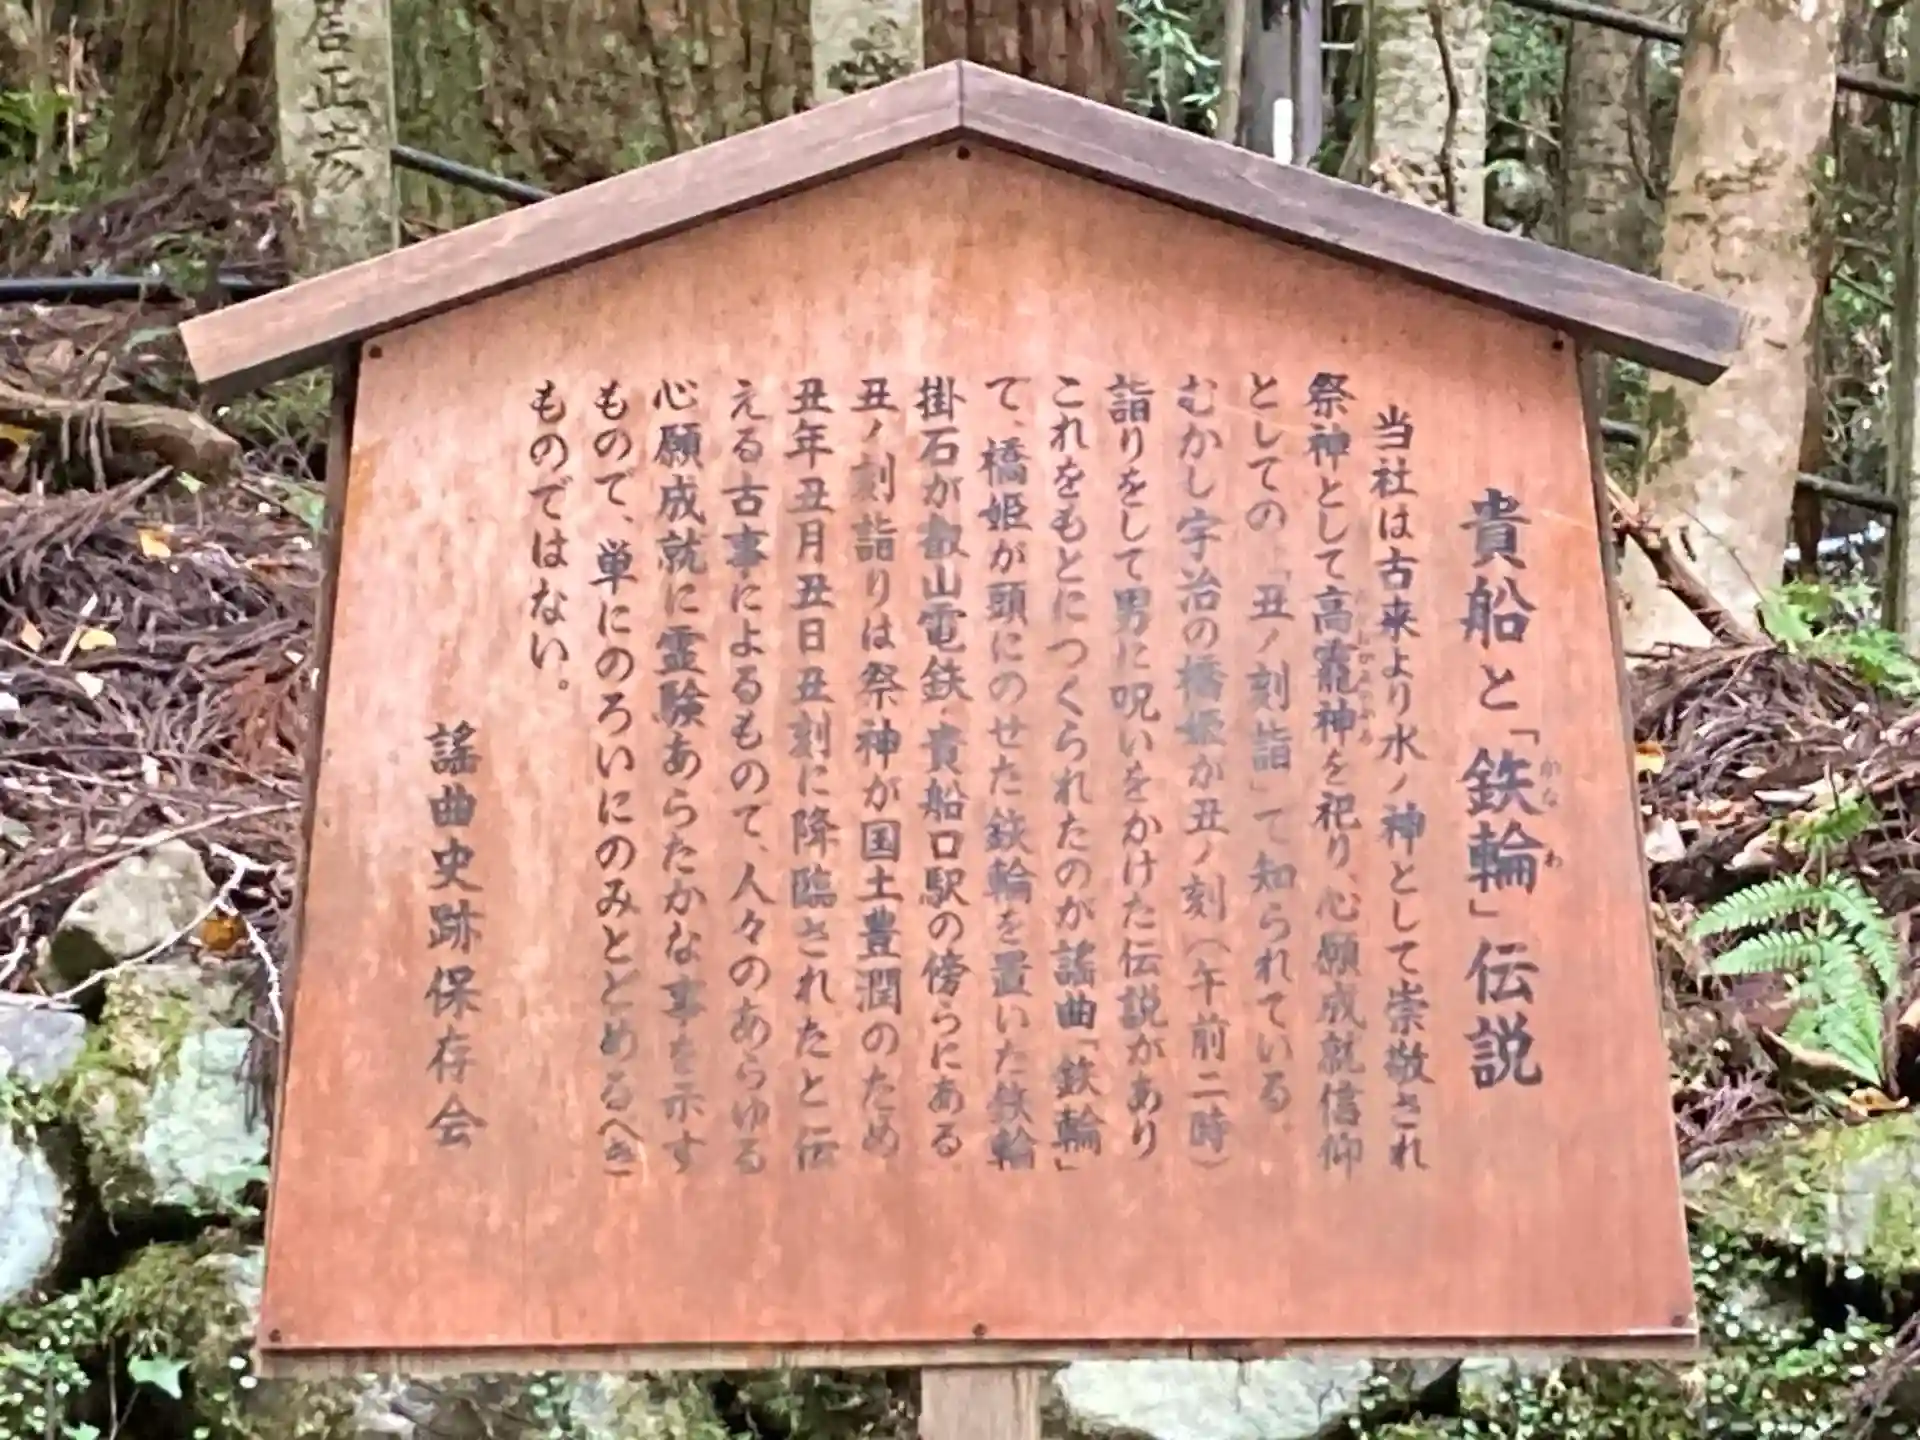 貴船と「鉄輪」伝説
かなわ
当社は古来より水ノ神として崇敬され
祭神として高龗神を祀り、心願成就信仰
としての「丑ノ刻詣」で知られている。
むかし宇治の橋姫が丑ノ刻(午前二時)
詣りをして男に呪いをかけた伝説があり
これをもとにつくられたのが謡曲「鉄輪」
で、橋姫が頭にのせた鉄輪を置いた鉄輪
掛石が叡山電鉄・貴船口駅の傍らにある
丑ノ刻詣りは祭神が国土豊潤のため
丑年丑月丑日丑刻に降臨されたと伝
える古事によるもので、人々のあらゆる
心願成就に霊験あらたかな事を示す
もので、単にのろいにのみとどめるべき
ものではない。
謡曲史跡保存会